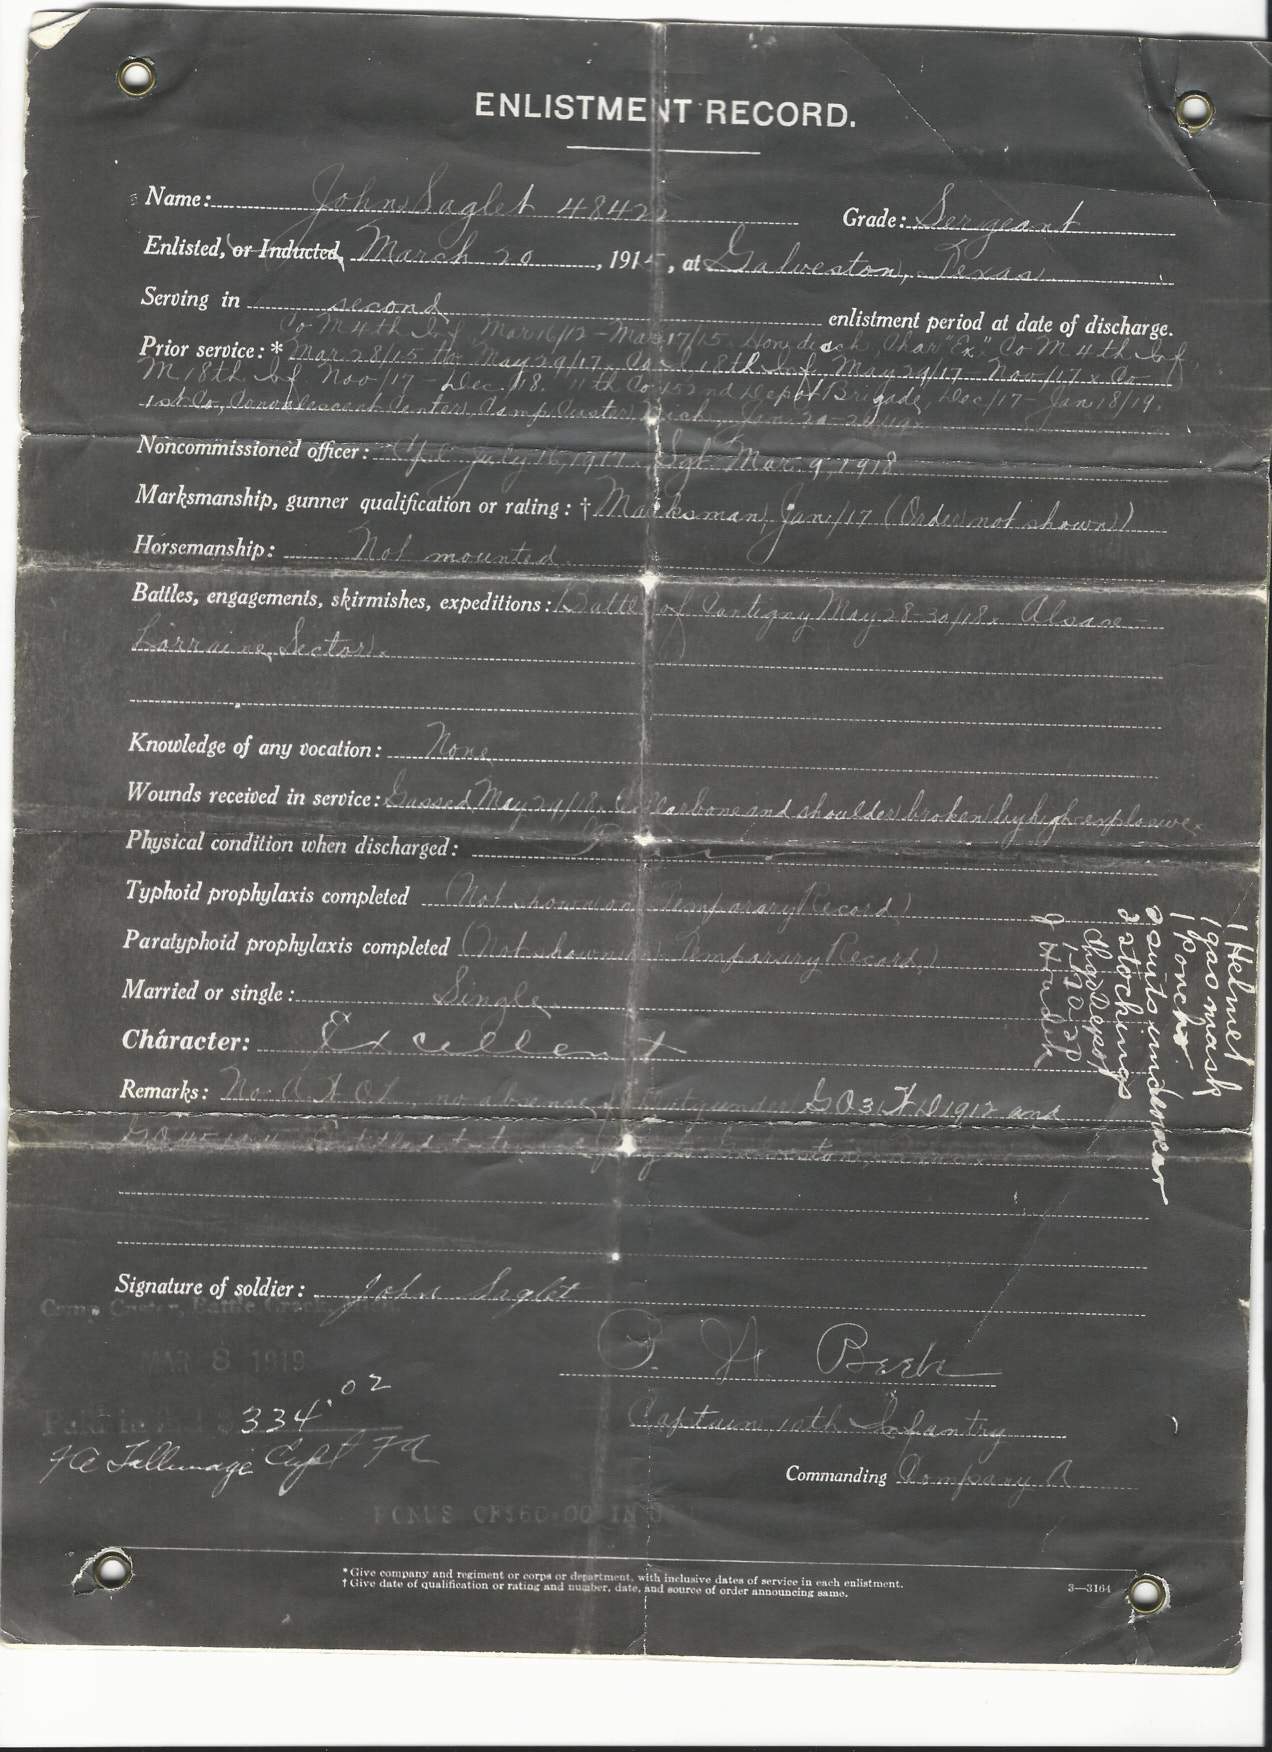 ENLISTMENT RECORD.
Name: John Saglet 4842 Grade: Sergeant
Enlisted, or Inducted, March 20, 191 , at Galveston, Texas.
Serving in second enlistment period at date of discharge.
Co M 4th Inf Mar 16/12 – Mar 17/15. Hon. disch, Char "Ex". Co M 4th Inf
Prior service: * Mar 28/15 to May 29/17. Co 18th Inf May 29/17 – Nov/17. Co
M 18th Inf Nov/17 – Dec /18. 11th Co nd Depot Brigade, Dec/17 – Jan 18/19.
1st Co, Convalescent Center, Camp Custer, Mich, Jan
Noncommissioned officer: July 16, 1917. Sgt. Mar. 9, 1918
Marksmanship, gunner qualification or rating: † Marksman, Jan/17 (Order not shown)
Horsemanship: Not mounted
Battles, engagements, skirmishes, expeditions: Battle of Cantigny May 28-30/18. Alsace-
Lorraine Sector.
Knowledge of any vocation: None
Wounds received in service: Gassed May 29/18. Collarbone and shoulder broken by high explosive.
Physical condition when discharged:
Typhoid prophylaxis completed (Not shown on Temporary Record)
Paratyphoid prophylaxis completed (Not shown on Temporary Record)
Married or single: Single
Character: Excellent
Remarks: No A W O L, no absence duty under G O 31 W D 1912 and
G.O. 45 1914. Entitled to travel pay to Galveston,
Signature of soldier: John Saglet
Camp Custer, Battle Creek, Mich.
MAR 8 1919
Paid in full $ 334.02
Capt F A
Captain 10th Infantry
Commanding Company A
BONUS OF $60.00 IN
* Give company and regiment or corps or department, with inclusive dates of service in each enlistment.
† Give date of qualification or rating and number, date, and source of order announcing same.
3—3164
1 Helmet
1 gas mask
1 Poncho
2 suits underwear
2 stockings